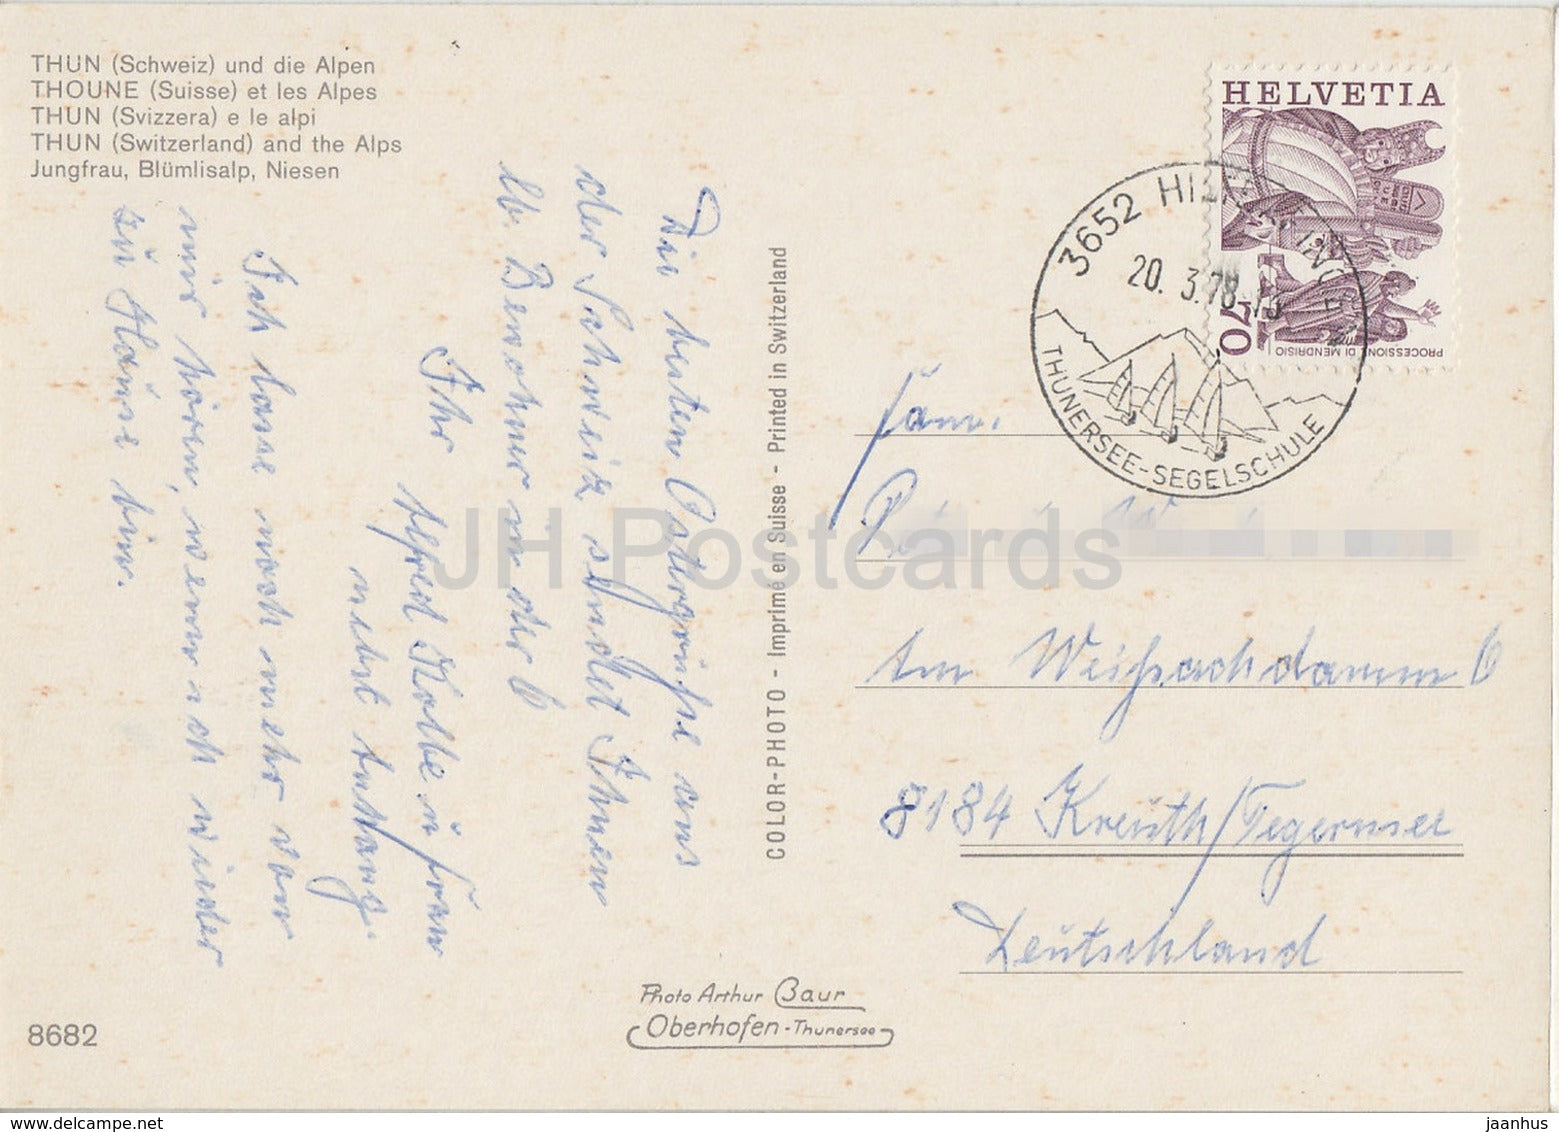 THUN (Schweiz) und die Alpen
THOUNE (Suisse) et les Alpes
THUN (Svizzera) e le alpi
THUN (Switzerland) and the Alps
Jungfrau, Blümlisalp, Niesen
Die besten Ostergrüße aus
der Schweiz sendet Ihnen
lb. Bewohner in der 6
Ihr Alfred Kolbe u. Frau
nebst Anhang.
Ich lasse noch mehr von
mir hören, wenn ich wieder
zu Hause bin.
COLOR-PHOTO - Imprimé en Suisse - Printed in Switzerland
HELVETIA
70
PROCESSIONI DI MENDRISIO
3652 HILTERFINGEN
20. 3.78
THUNERSEE-SEGELSCHULE
Fam.
Am Weißachdamm 6
8184 Kreuth/Tegernsee
Deutschland
Photo Arthur Baur
Oberhofen-Thunersee
8682
JH Postcards
delcampe.net
jaanhus